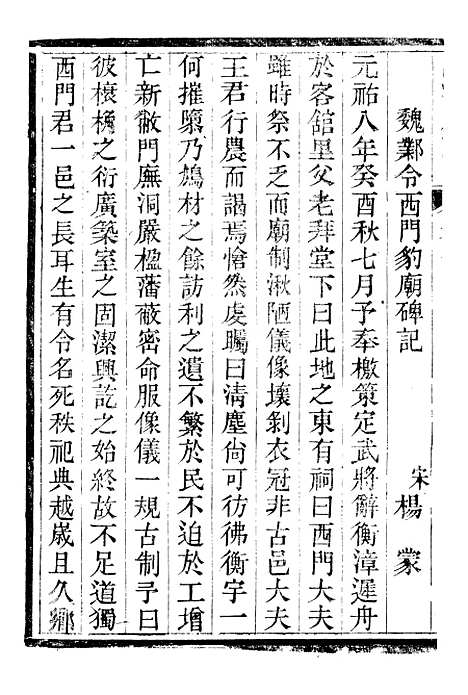 魏鄴令西門豹廟碑記
宋楊蒙
元祐八年癸酉秋七月予奉檄策定武將辭衡漳遲舟
於客舘里父老拜堂下曰此地之東有祠曰西門大夫
雖時祭不乏而廟制湫陋儀像壞剝衣冠非古邑大夫
王君行農而謁焉愴然虔矚曰清塵尙可彷彿衡宇一
何摧隳乃鳩材之餘訪利之遺不繁於民不迫於工增
亡新敝門廡洞嚴楹藩蔽密命服像儀一規古制予曰
彼榱桷之衍廣築室之固潔興訖之始終故不足道獨
西門君一邑之長耳生有令名死秩祀典越歲且久鄉